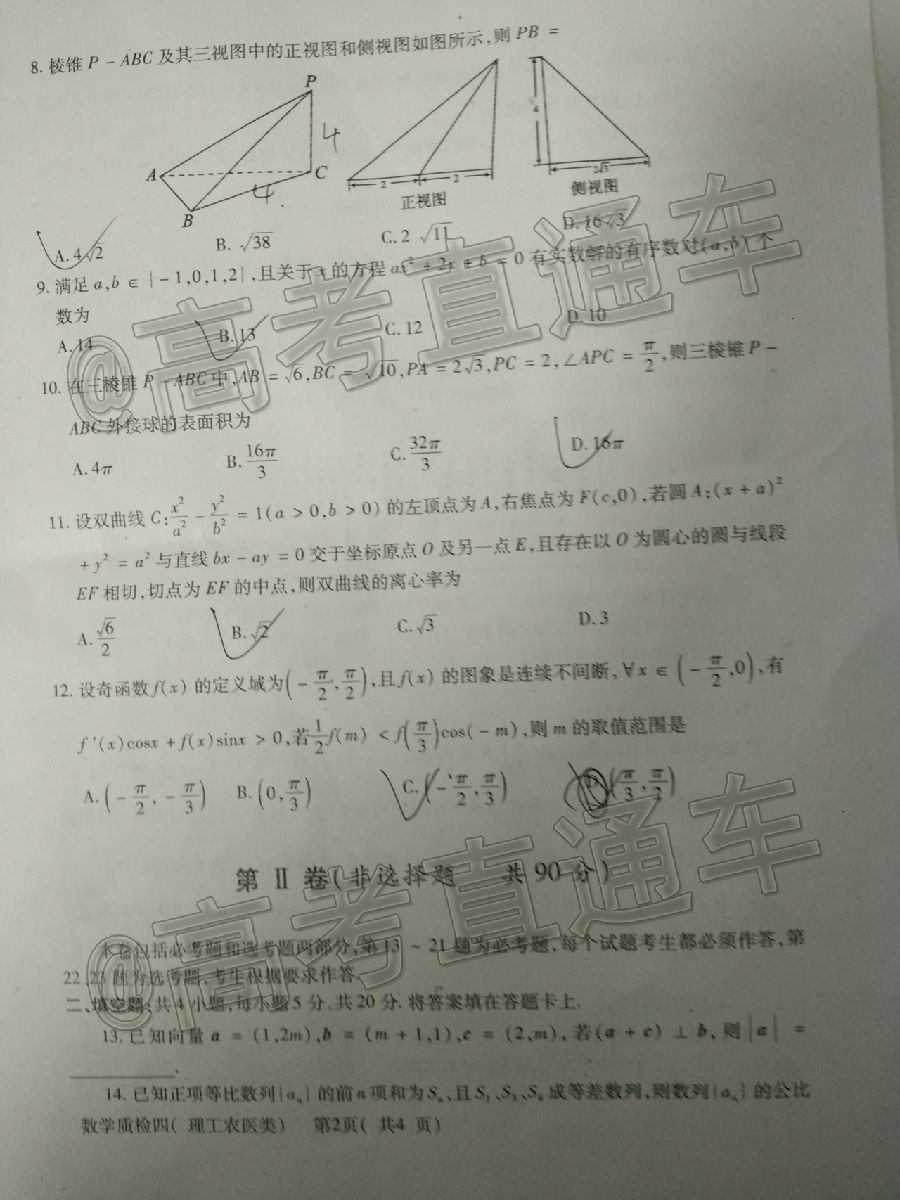 8. 棱锥 P - ABC 及其三视图中的正视图和侧视图如图所示,则 PB =
P
4
A
C
B
4.
2
2
正视图
4
2√3
侧视图
A. 4√2 B. √38 C. 2 √11 D. 16√3
9. 满足 a,b ∈ {-1,0,1,2},且关于 x 的方程 ax² + 2x + b = 0 有实数解的有序数对(a,b)个
数为
A. 14 B. 13 C. 12 D. 10
10. 在三棱锥 P - ABC 中, AB = √6, BC = √10, PA = 2√3, PC = 2, ∠APC = π/2,则三棱锥 P -
ABC 外接球的表面积为
A. 4π B. 16π/3 C. 32π/3 D. 16π
11. 设双曲线 C: x²/a² - y²/b² = 1(a > 0,b > 0) 的左顶点为 A,右焦点为 F(c,0),若圆 A:(x + a)²
+ y² = a² 与直线 bx - ay = 0 交于坐标原点 O 及另一点 E,且存在以 O 为圆心的圆与线段
EF 相切,切点为 EF 的中点,则双曲线的离心率为
A. √6/2 B. √2 C. √3 D. 3
12. 设奇函数 f(x) 的定义域为(-π/2,π/2),且 f(x) 的图象是连续不间断, ∀x ∈ (-π/2,0),有
f'(x)cosx + f(x)sinx > 0,若 1/2 f(m) < f(π/3)cos(-m),则 m 的取值范围是
A. (-π/2, -π/3) B. (0,π/3) C. (-π/2,π/3) D. (π/3,π/2)
第 Ⅱ 卷(非选择题 共 90 分)
本卷包括必考题和选考题两部分,第 13 ~ 21 题为必考题,每个试题考生都必须作答,第
22,23 题为选考题,考生根据要求作答.
二、填空题:共 4 小题,每小题 5 分,共 20 分. 将答案填在答题卡上.
13. 已知向量 a = (1,2m),b = (m + 1,1),c = (2,m),若(a + c) ⊥ b,则 |a| =
________.
14. 已知正项等比数列{aₙ} 的前 n 项和为 Sₙ,且 S₁、S₃、S₄ 成等差数列,则数列{aₙ} 的公比
数学质检四( 理工农医类) 第2页( 共4 页)
@高考直通车
@高考直通车